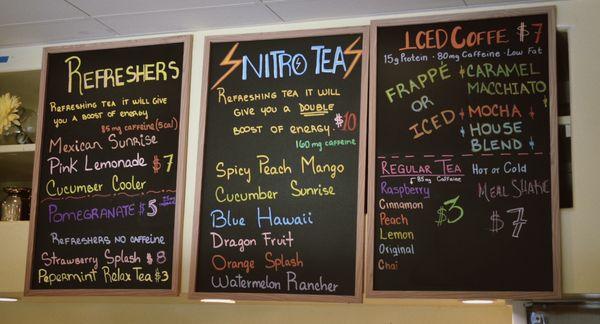 REFRESHERS
REFRESHING TEA IT WILL GIVE
YOU A BOOST OF ENERGY
85 mg caffeine (5 cal)
Mexican Sunrise
Pink Lemonade $7
Cucumber Cooler
POMEGRANATE $5
REFRESHERS NO CAFFEINE
Strawberry Splash $8
Peppermint Relax Tea $3
NITRO TEAS
REFRESHING TEA IT WILL
GIVE YOU A DOUBLE
BOOST OF ENERGY. $10
160 mg caffeine
Spicy Peach Mango
Cucumber Sunrise
Blue Hawaii
Dragon Fruit
Orange Splash
Watermelon Rancher
ICED COFFEE $7
15g Protein · 80mg Caffeine · Low Fat
FRAPPÉ OR ICED
CARAMEL
MACCHIATO
MOCHA
HOUSE
BLEND
REGULAR TEA
85mg Caffeine
Raspberry
Cinnamon
Peach $3
Lemon
Original
Chai
Hot or Cold
MEAL SHAKE
$7